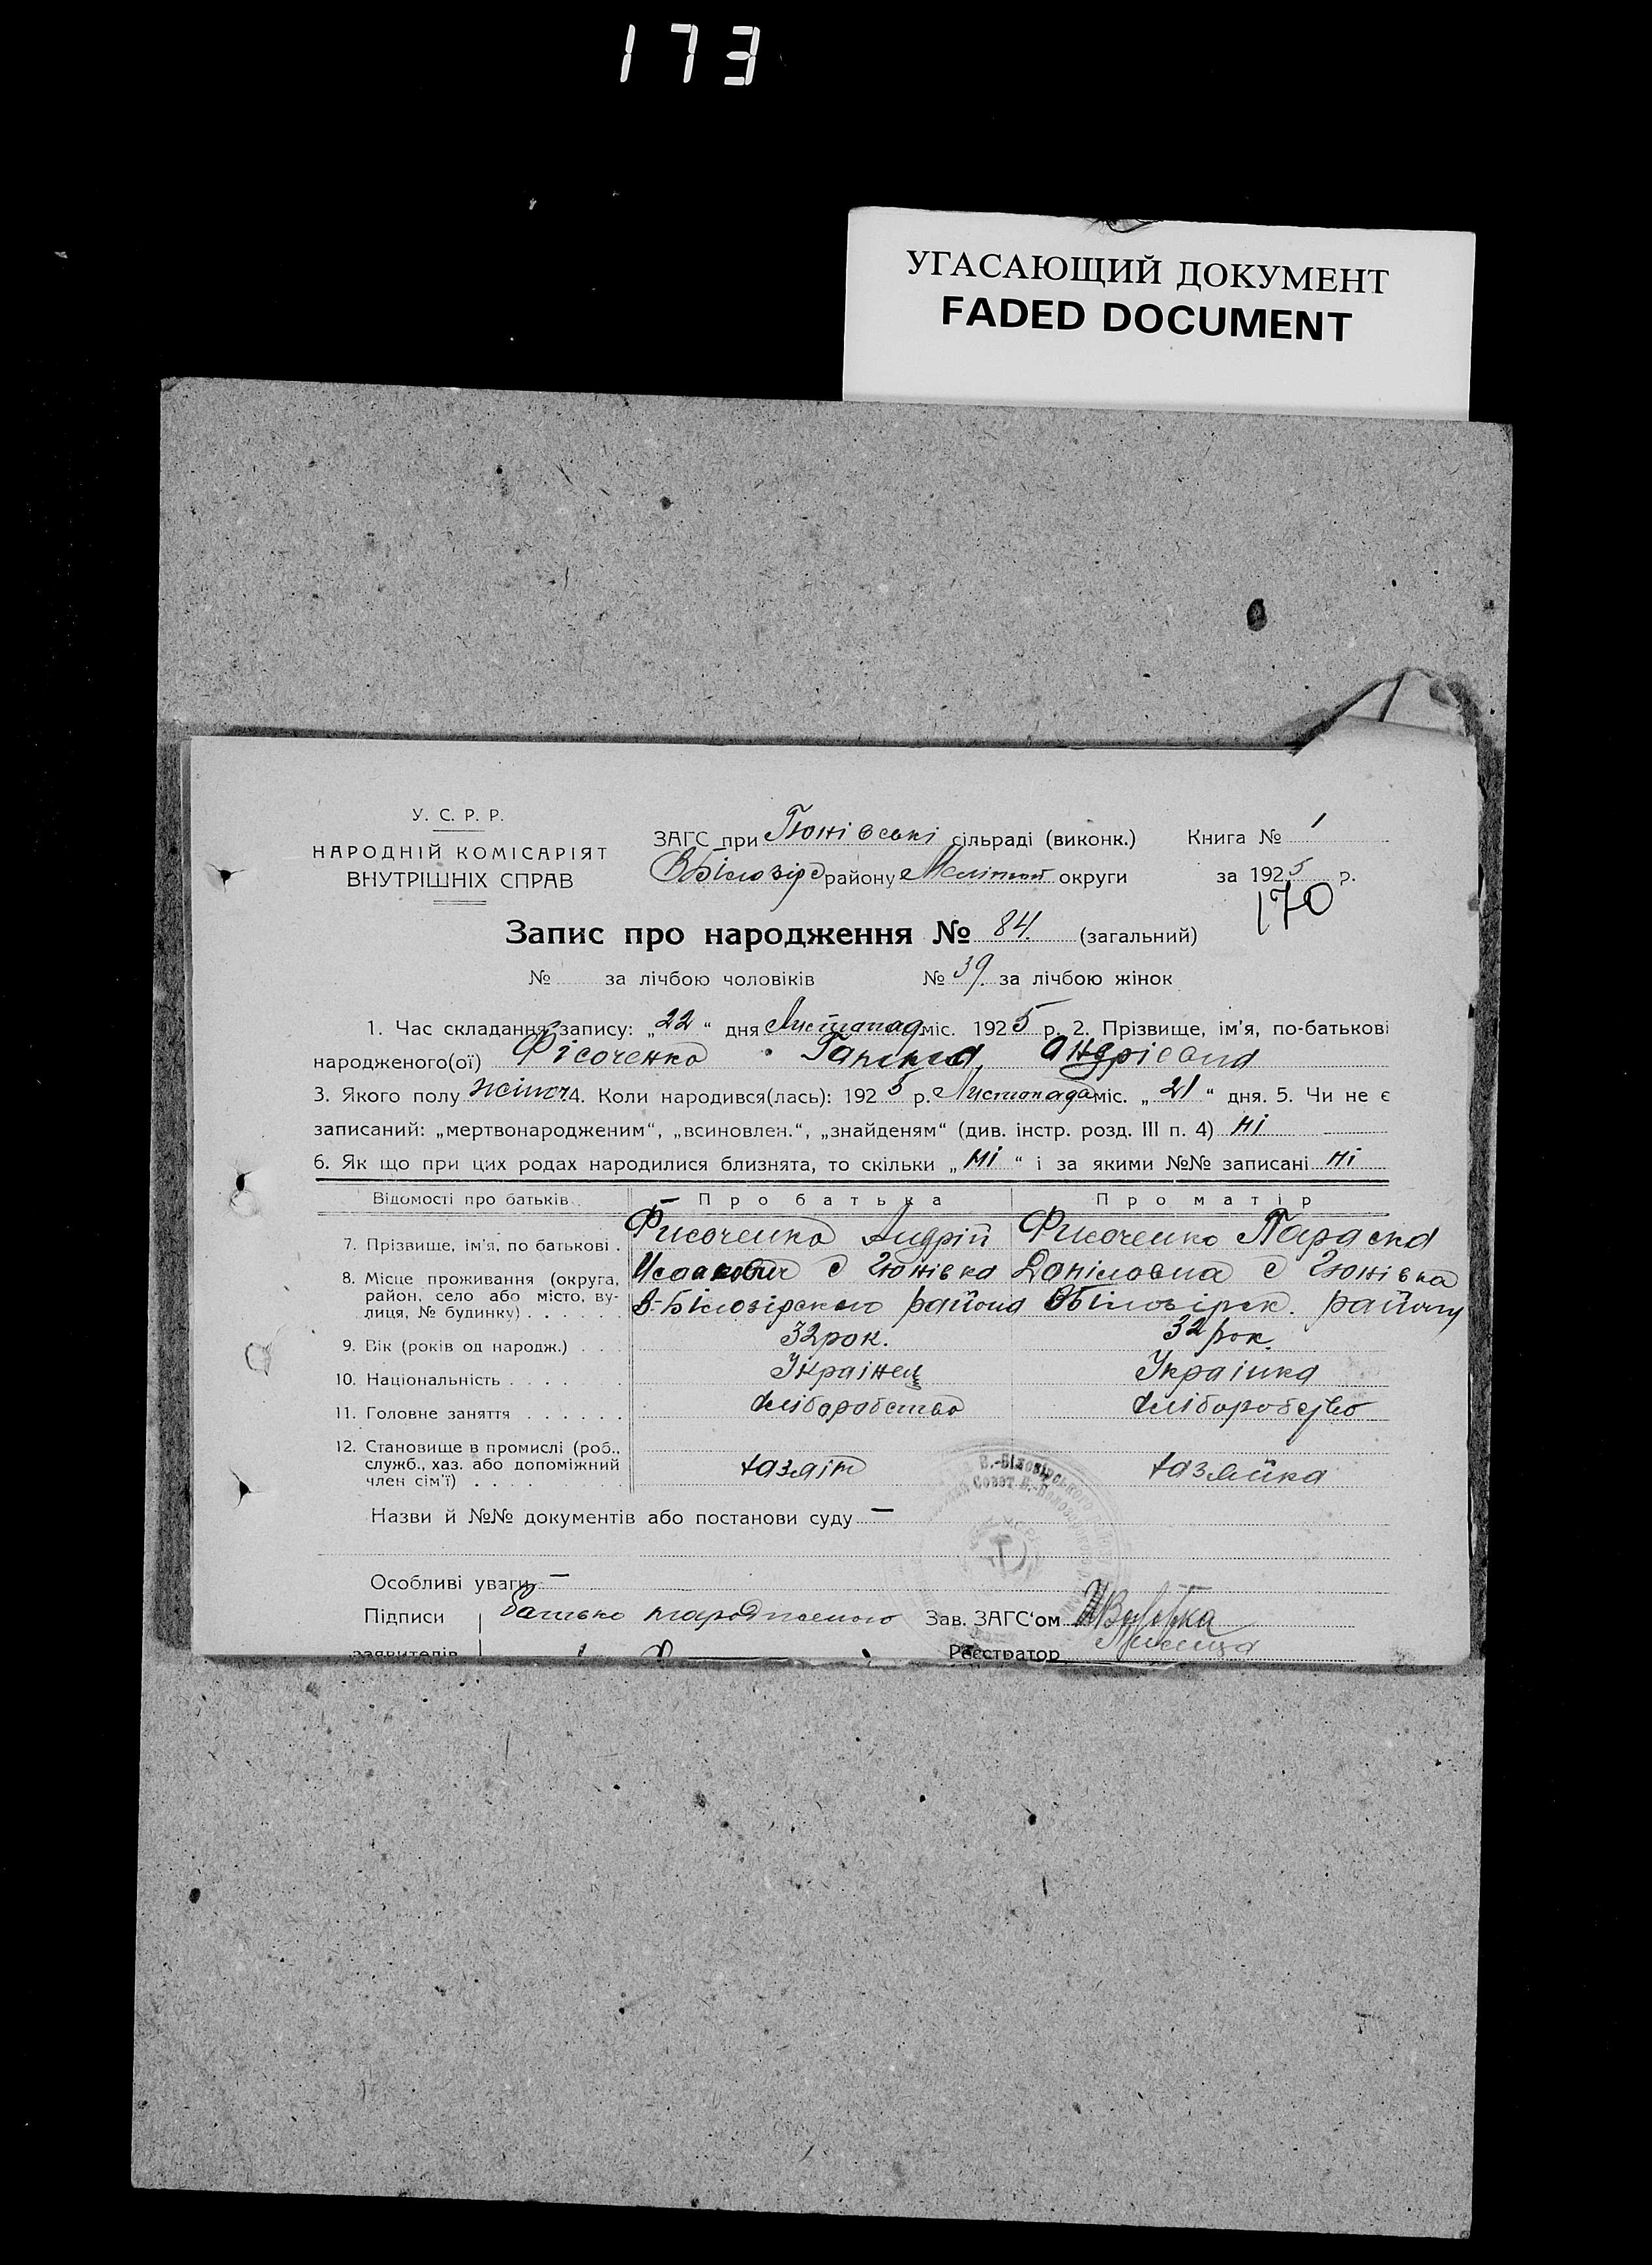 173
УГАСАЮЩИЙ ДОКУМЕНТ
FADED DOCUMENT
У. С. Р. Р.
НАРОДНІЙ КОМІСАРІЯТ
ВНУТРІШНІХ СПРАВ
ЗАГС при Гюнівські сільраді (виконк.) Книга № 1
ВБілозірс району Мелітоп округи за 1925 р.
170
Запис про народження № 84. (загальний)
№ за лічбою чоловіків № 39. за лічбою жінок
1. Час складання запису: „22“ дня Листопад міс. 1925 р. 2. Прізвище, ім'я, по-батькові
народженого(ої) Фісоченко Ганна Андрієвна
3. Якого полу жіноч 4. Коли народився(лась): 1925 р. Листопада міс. „21“ дня. 5. Чи не є
записаний: „мертвонародженим“, „всиновлен.“, „знайденям“ (див. інстр. розд. III п. 4) Ні
6. Як що при цих родах народилися близнята, то скільки „Ні“ і за якими №№ записані Ні
Відомості про батьків Про батька Про матір
7. Прізвище, ім'я, по батькові . Фисоченко Андрій Фисоченко Параска
8. Місце проживання (округа, Исаакович с Гюнівка Даніловна с Гюнівка
район, село або місто, ву-
лиця, № будинку) . . . . . . В-Білозірского района ВБілозірск. району
9. Вік (років од народж.) . . . 32 рок. 32 рок.
10. Національність . . . . . Українец Українка
11. Головне заняття . . . . . . Хліборобство Хліборобство
12. Становище в промислі (роб.,
служб., хаз. або допоміжний хазяїн хазяйка
член сім'ї) . . . .
В.-Білозірського
Совет В.-Белозерского
УСРР
Назви й №№ документів або постанови суду —
Особливі уваги —
Підписи Батько народженого Зав. ЗАГС'ом
заявителів Реєстратор